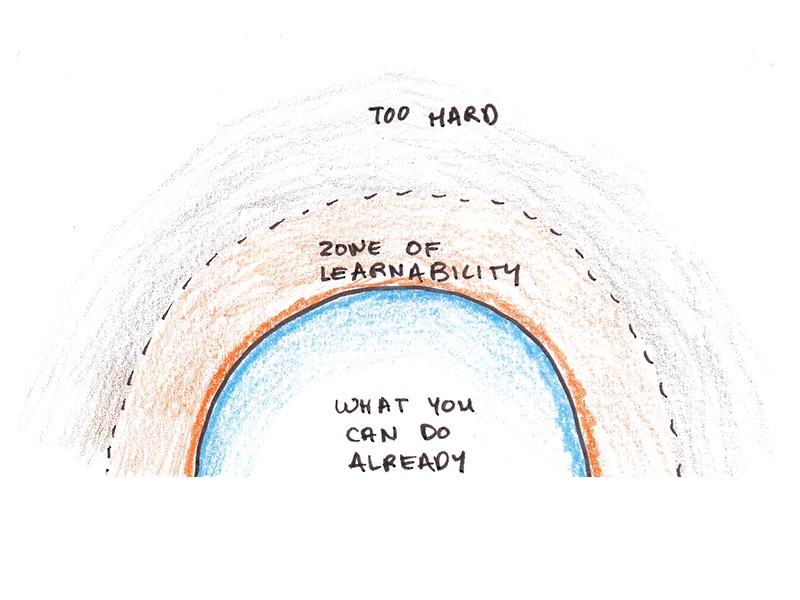 TOO HARD
ZONE OF
LEARNABILITY
WHAT YOU
CAN DO
ALREADY